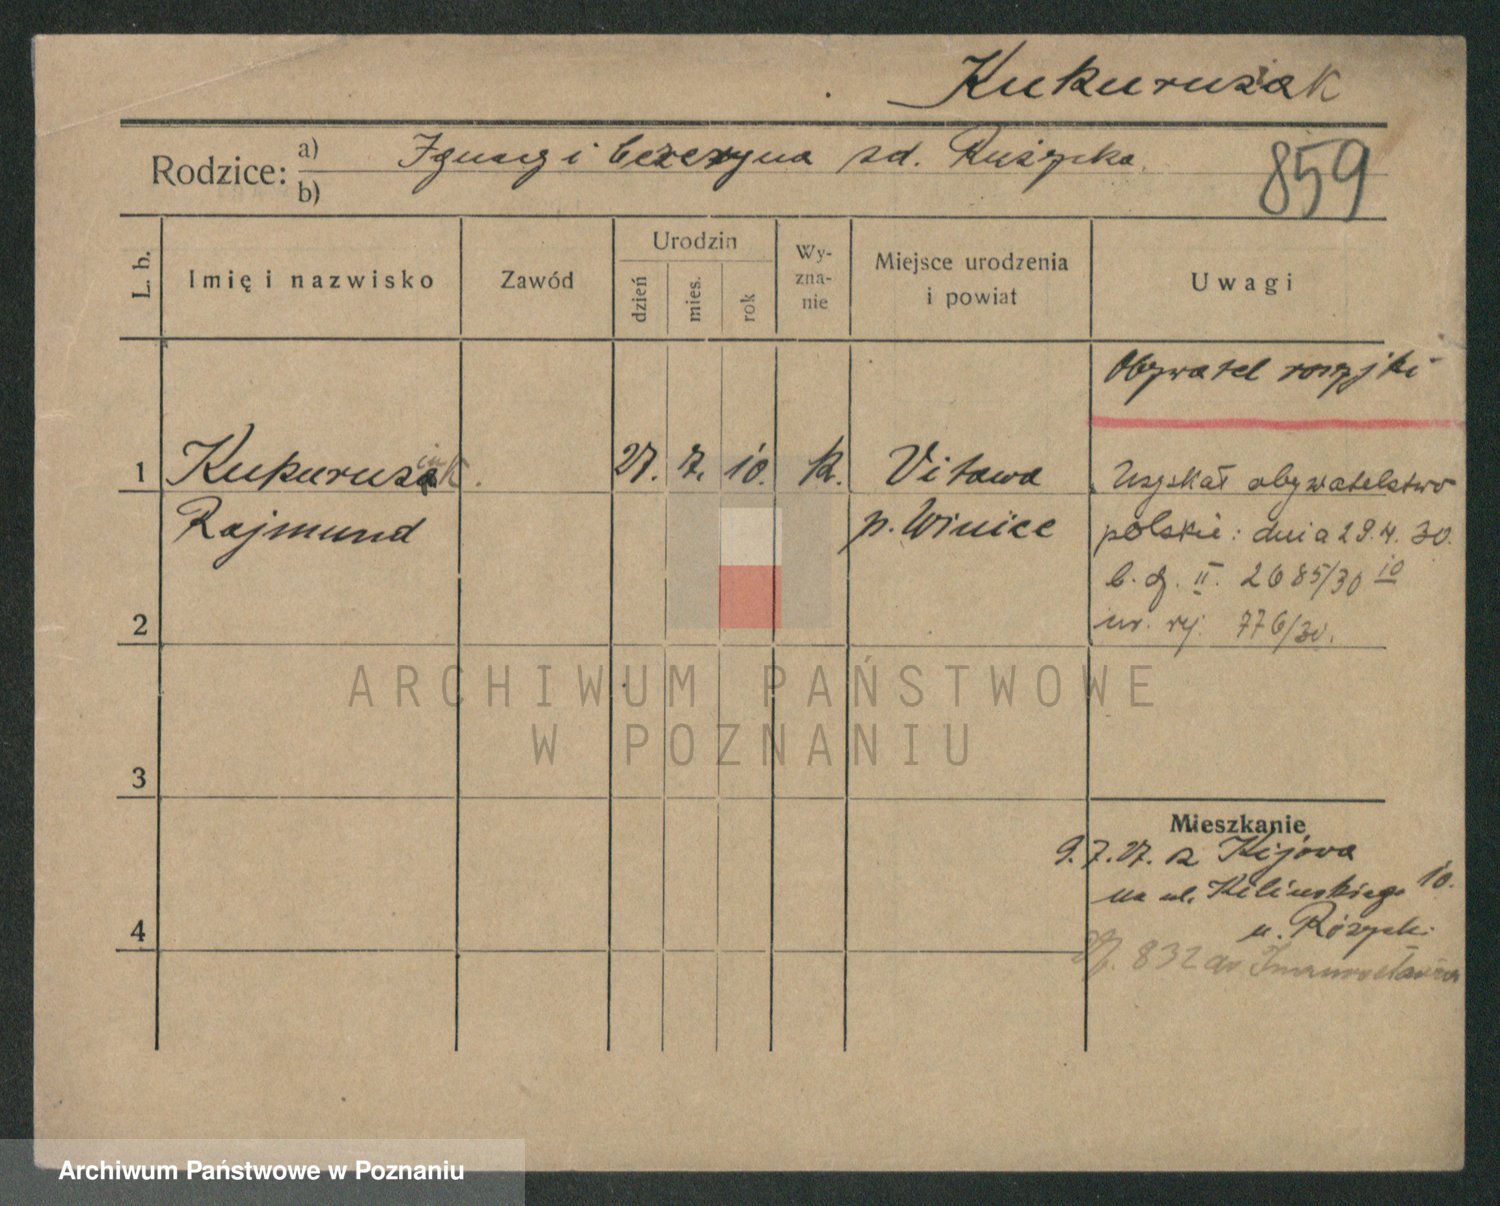 Kukurusiak
Rodzice: a) b)
Ignacy i Cezeryna zd. Rużycka
859
L. b.
Imię i nazwisko
Zawód
Urodzin
dzień
mies.
rok
Wy-
zna-
nie
Miejsce urodzenia
i powiat
Uwagi
Obywatel rosyjski
1
Kukurusiak
27. 7. 10. k. Vitawa
Uzyskał obywatelstwo
Rajmund
p. Winice
polskie: dnia 29.4.30.
L. dz. II. 2685/30 10
2
nr. rej. 776/30.
ARCHIWUM PAŃSTWOWE
W POZNANIU
3
Mieszkanie
9.7.27. z Kijowa
na ul. Kilinskiego 10.
4
u. Rózycki.
832
Archiwum Państwowe w Poznaniu